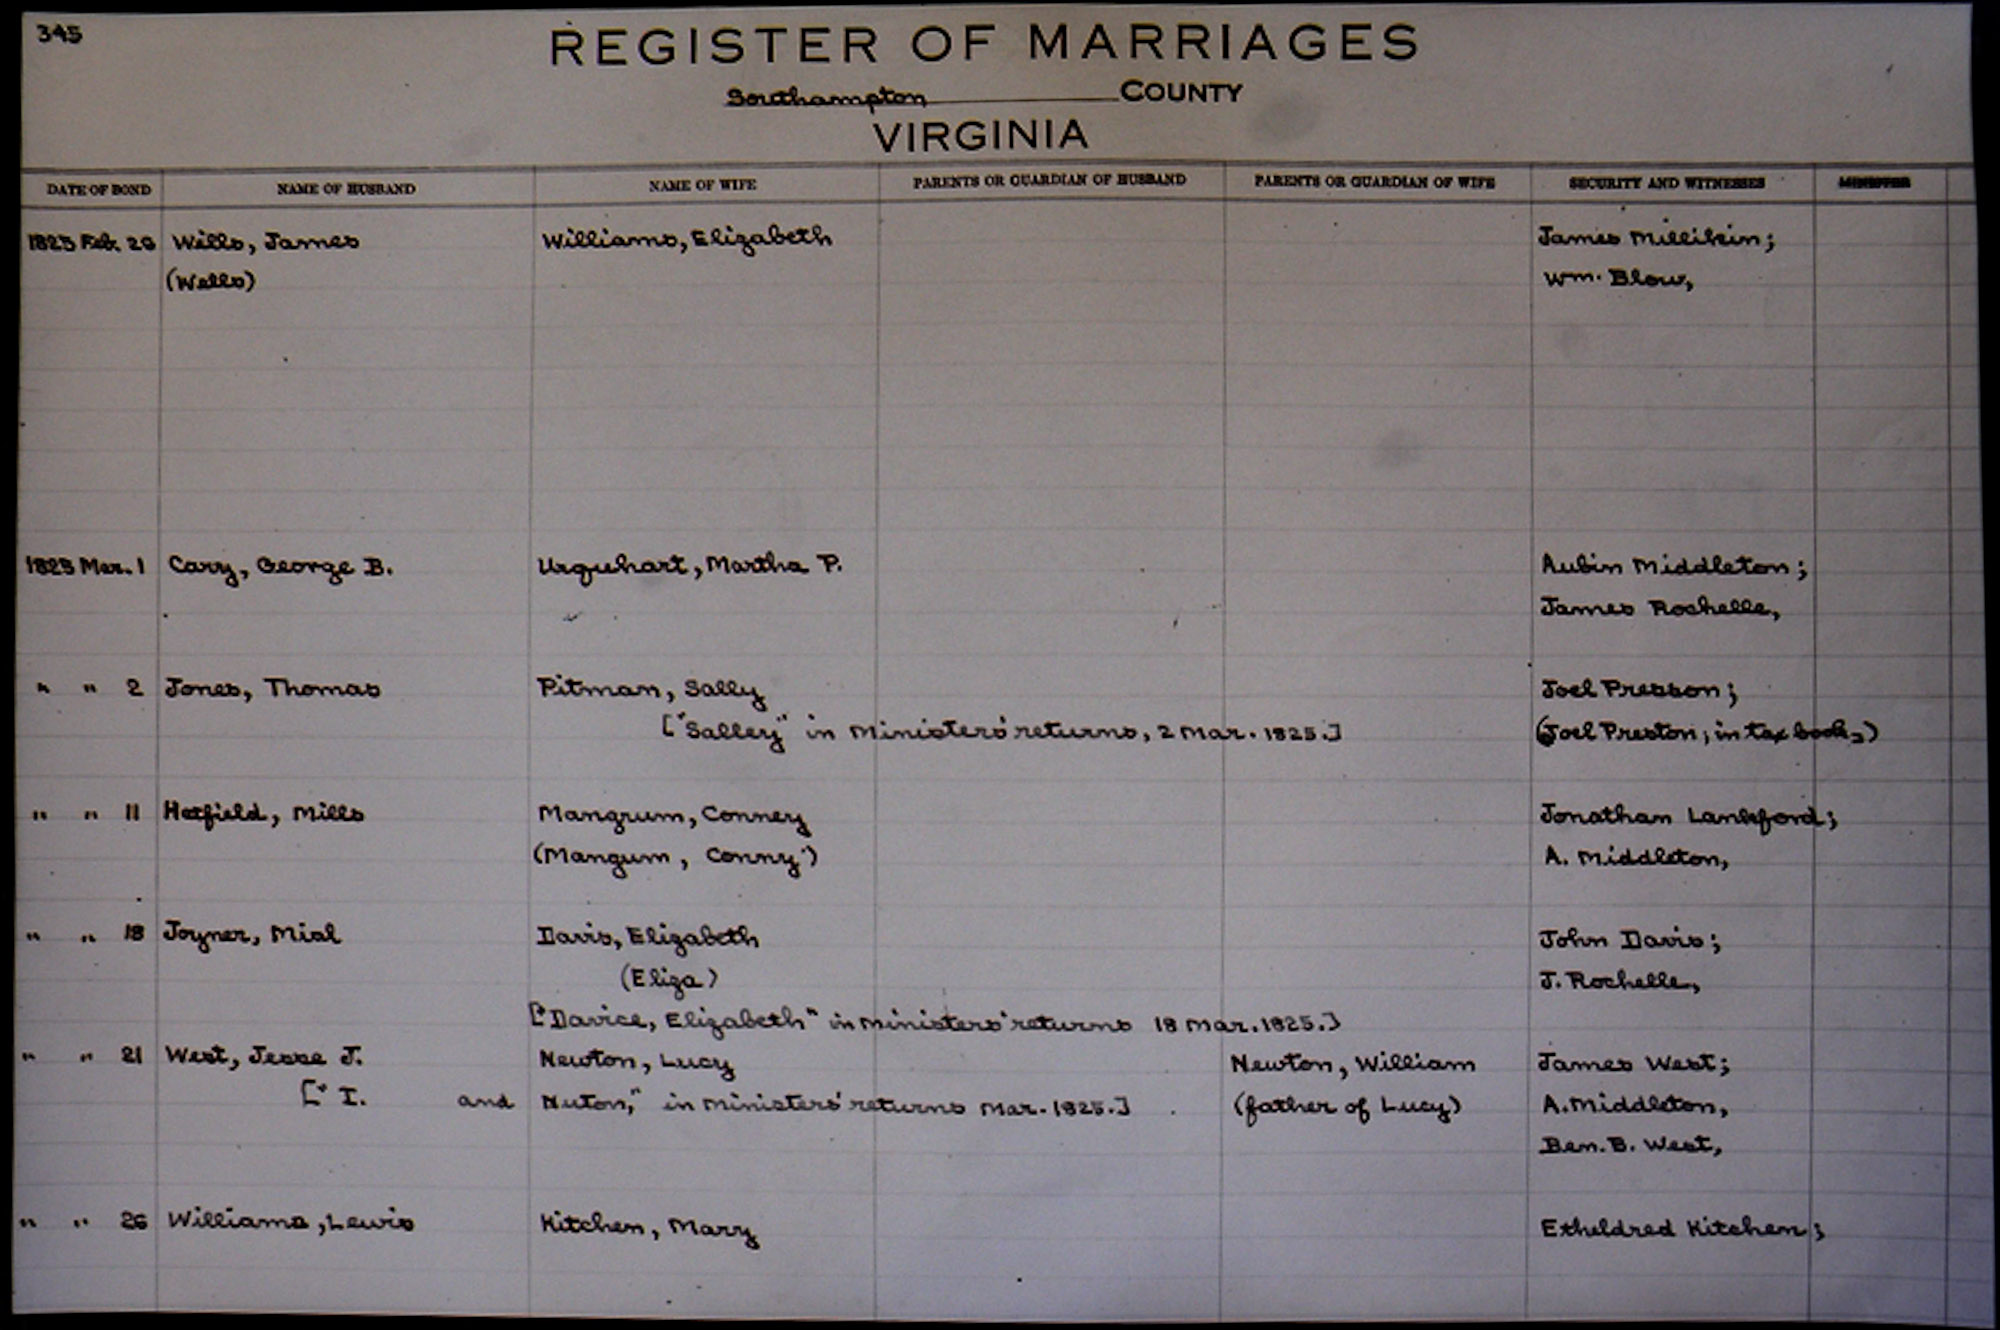 345
REGISTER OF MARRIAGES
Southampton COUNTY
VIRGINIA
DATE OF BOND NAME OF HUSBAND NAME OF WIFE PARENTS OR GUARDIAN OF HUSBAND PARENTS OR GUARDIAN OF WIFE SECURITY AND WITNESSES MINISTER
1825 Feb. Wills, James Williams, Elizabeth James Millikin;
(Wells) Wm. Blow,
1825 Mar. 1 Cary, George B. Urquhart, Martha P. Aubin Middleton;
James Rochelle,
" " 2 Jones, Thomas Pitman, Sally Joel Presson;
["Salley" in Ministers' returns, 2 Mar. 1825.] (Joel Preston; in tax books)
" " 11 Hatfield, Mills Mangrum, Conney Jonathan Lankford;
(Mangum, Conny) A. Middleton,
" " 18 Joyner, Mial Davis, Elizabeth John Davis;
(Eliza) J. Rochelle,
["Davice, Elizabeth" in ministers' returns 18 Mar. 1825.]
" " 21 West, Jesse J. Newton, Lucy Newton, William James West;
[" I. and Nuton," in ministers' returns Mar. 1825.] (father of Lucy) A. Middleton,
Ben. B. West,
" " 26 Williams, Lewis Kitchen, Mary Etheldred Kitchen;